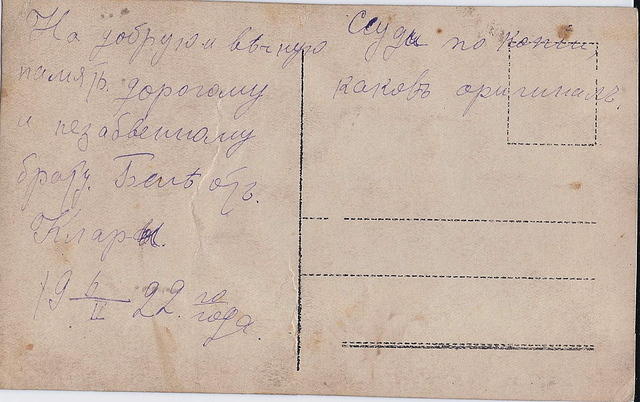 На добрую и вѣчную
память дорогому
и незабвенному
брату. Бенѣ отъ.
Клары.
19 6/II 22. го
года.
Суди по копіи
каковъ оригиналъ.